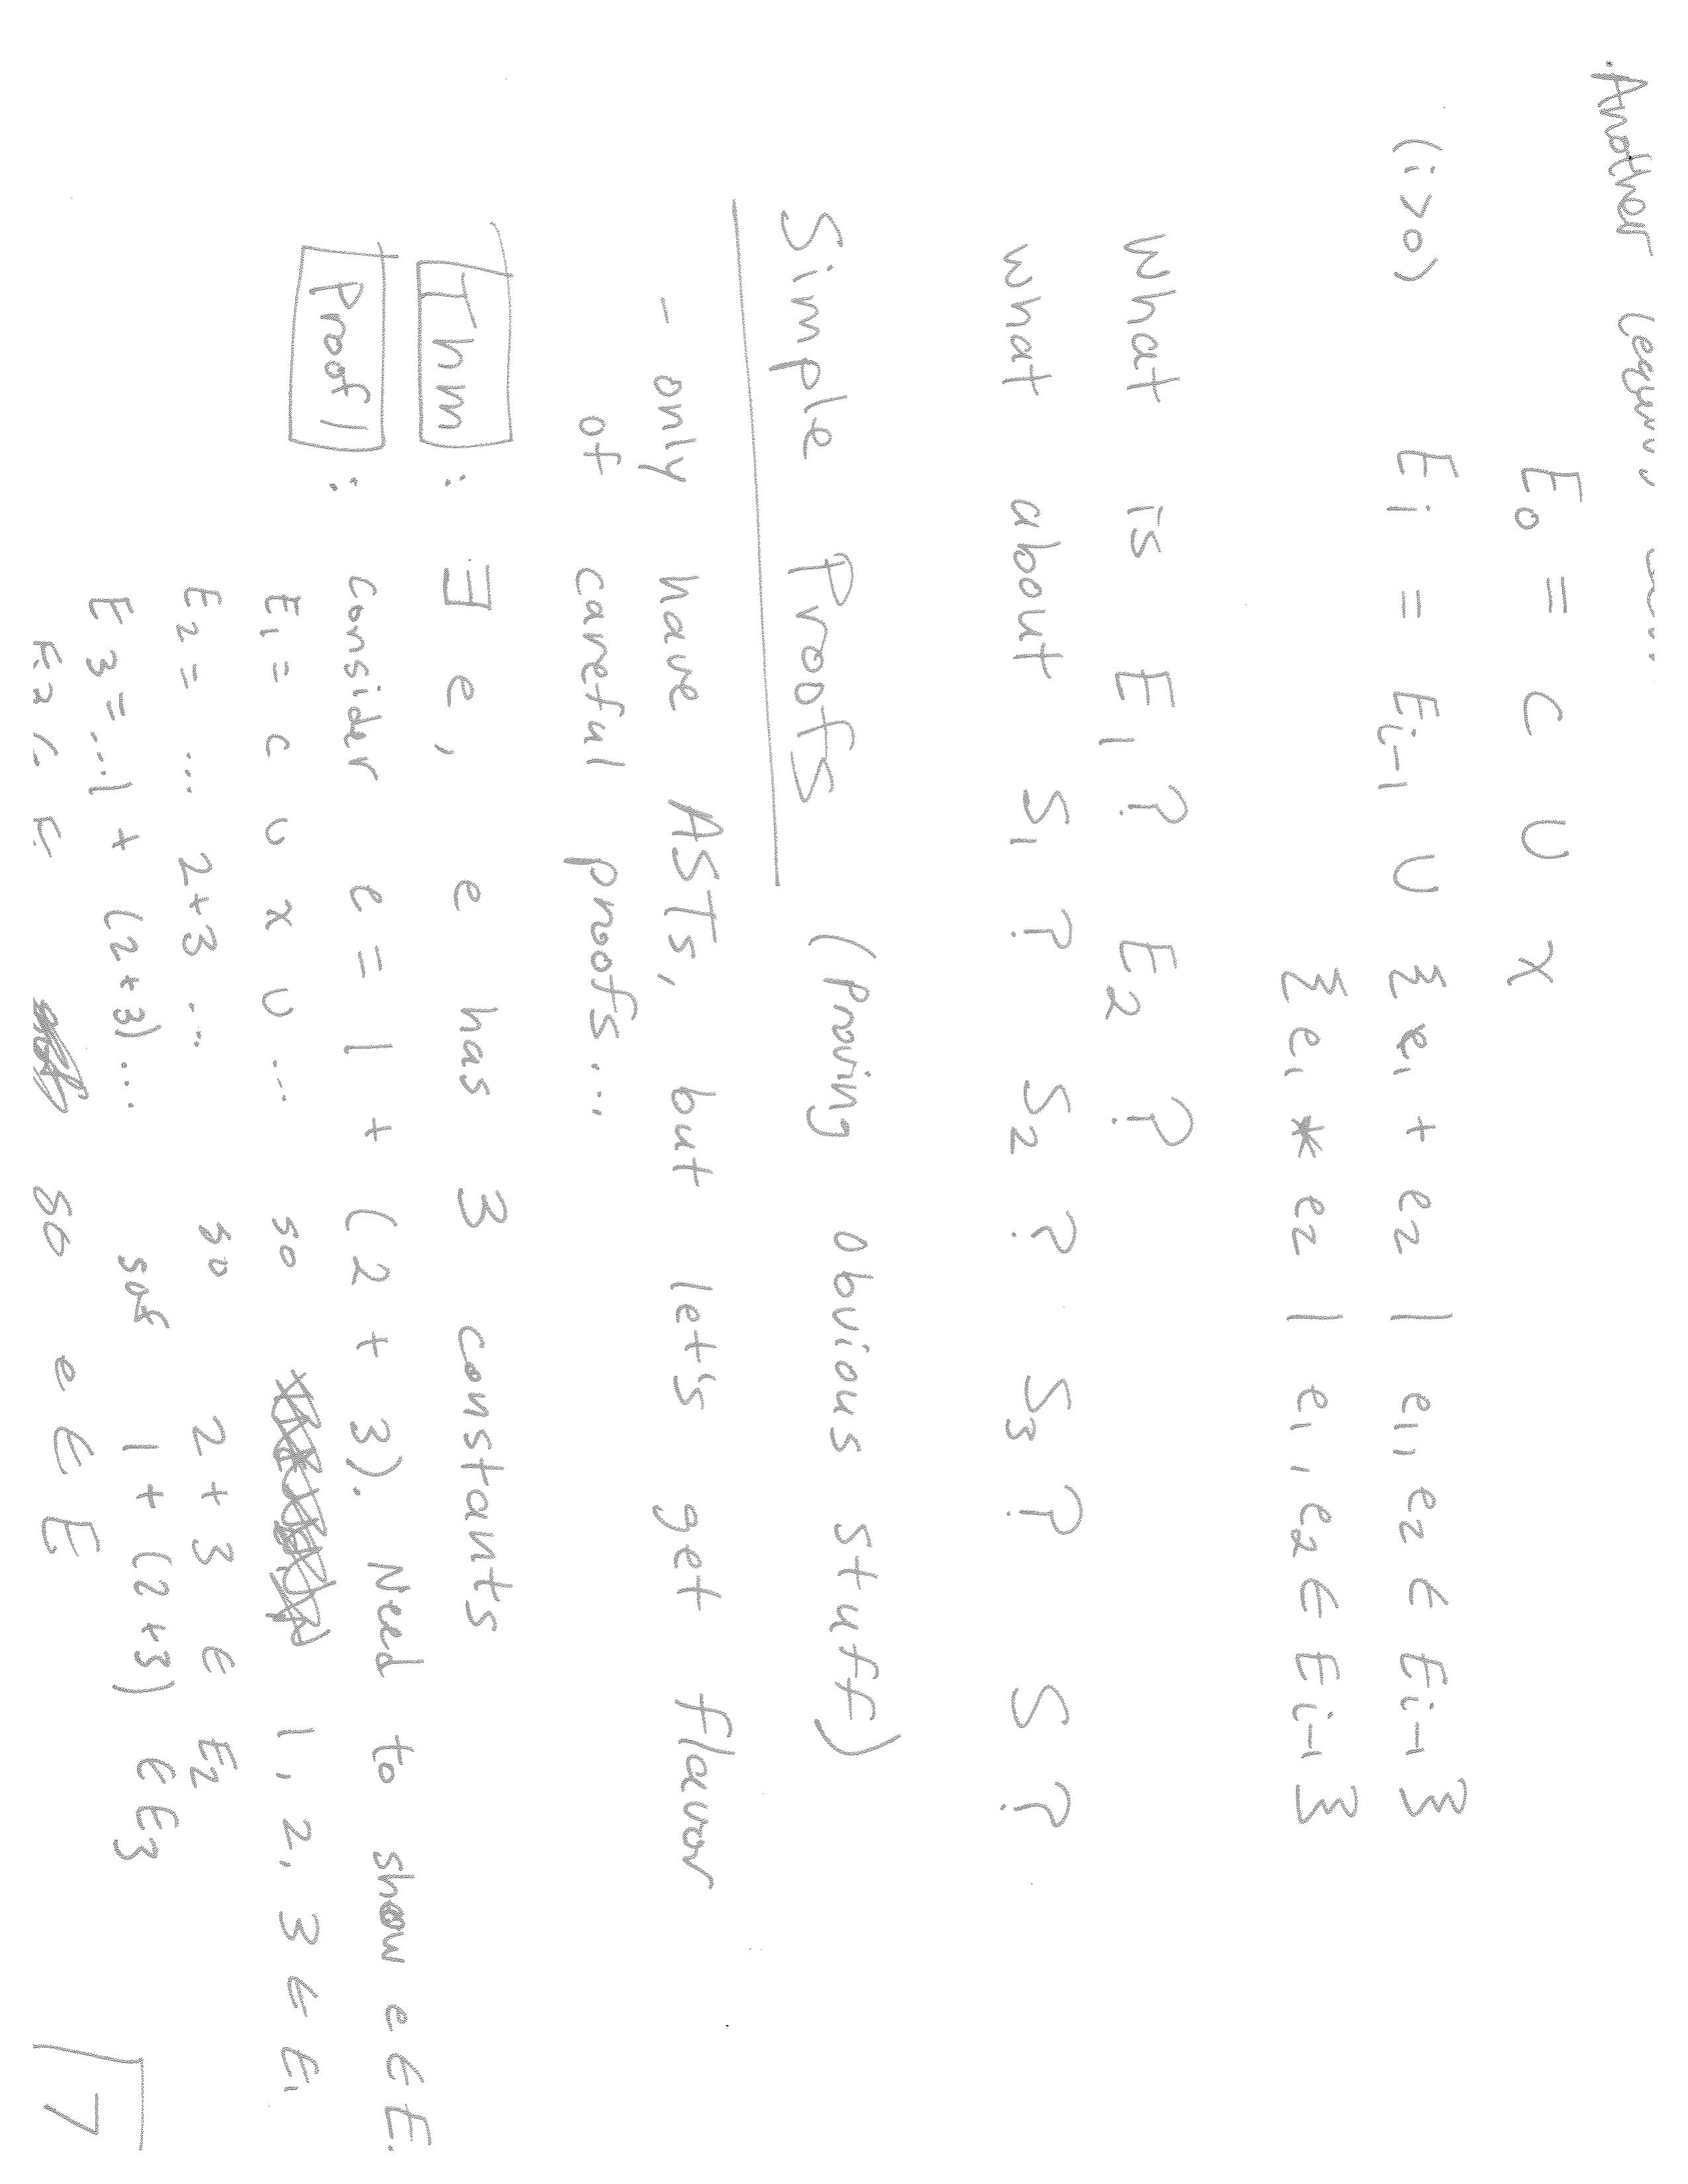 . Another
E₀ = c ∪ x
(i>0) Ei = Ei-1 ∪ {e₁ + e₂ | e₁, e₂ ∈ Ei-1}
{e₁ * e₂ | e₁, e₂ ∈ Ei-1}
What is E₁? E₂?
What about S₁? S₂? S₃? S?
Simple Proofs (proving obvious stuff)
- only have ASTs, but let's get flavor
of careful proofs...
Thm : ∃ e, e has 3 constants
Proof 1 : Consider e = 1 + (2 + 3). Need to show e ∈ E.
E₁ = c ∪ x ∪ ... so 1, 2, 3 ∈ E₁
E₂ = ... 2+3 ... so 2+3 ∈ E₂
E₃ = ...1 + (2+3)... so 1 + (2+3) ∈ E₃
so e ∈ E
7